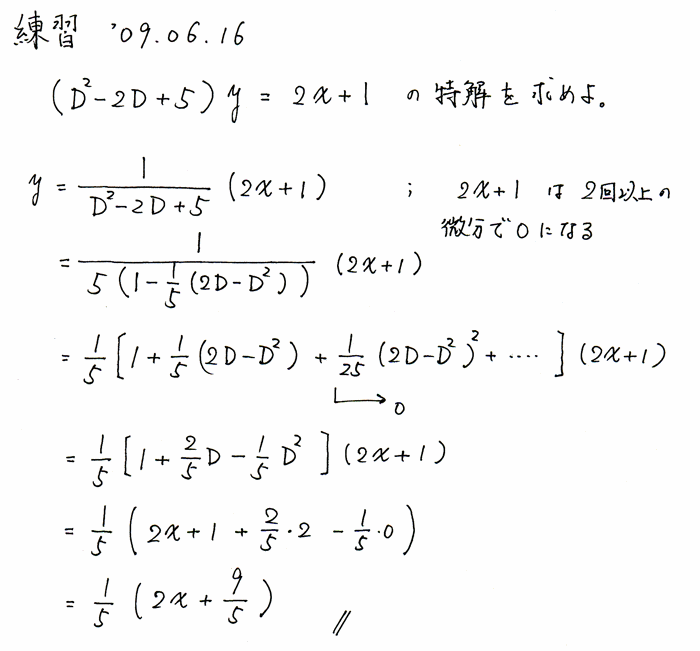 練習 '09.06.16
(D²-2D+5) y = 2x+1 の特解を求めよ。
y = 1/(D²-2D+5) (2x+1) ; 2x+1 は 2回以上の
微分で0になる
= 1/(5(1-1/5(2D-D²))) (2x+1)
= 1/5 [1+1/5(2D-D²) + 1/25 (2D-D²)² + ‥‥ ] (2x+1)
→ 0
= 1/5 [1+2/5 D - 1/5 D² ] (2x+1)
= 1/5 ( 2x+1 + 2/5・2 - 1/5・0 )
= 1/5 ( 2x + 9/5 ) //